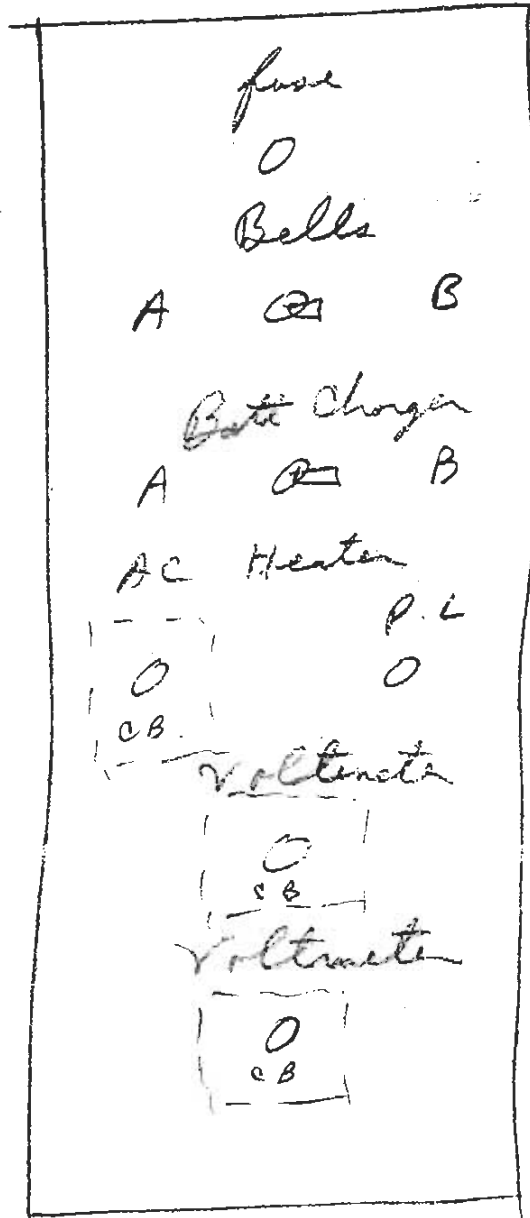 fuse
Bells
A B
Batt Charger
A B
AC Heater
P.L
CB
Voltmeter
CB
Voltmeter
CB